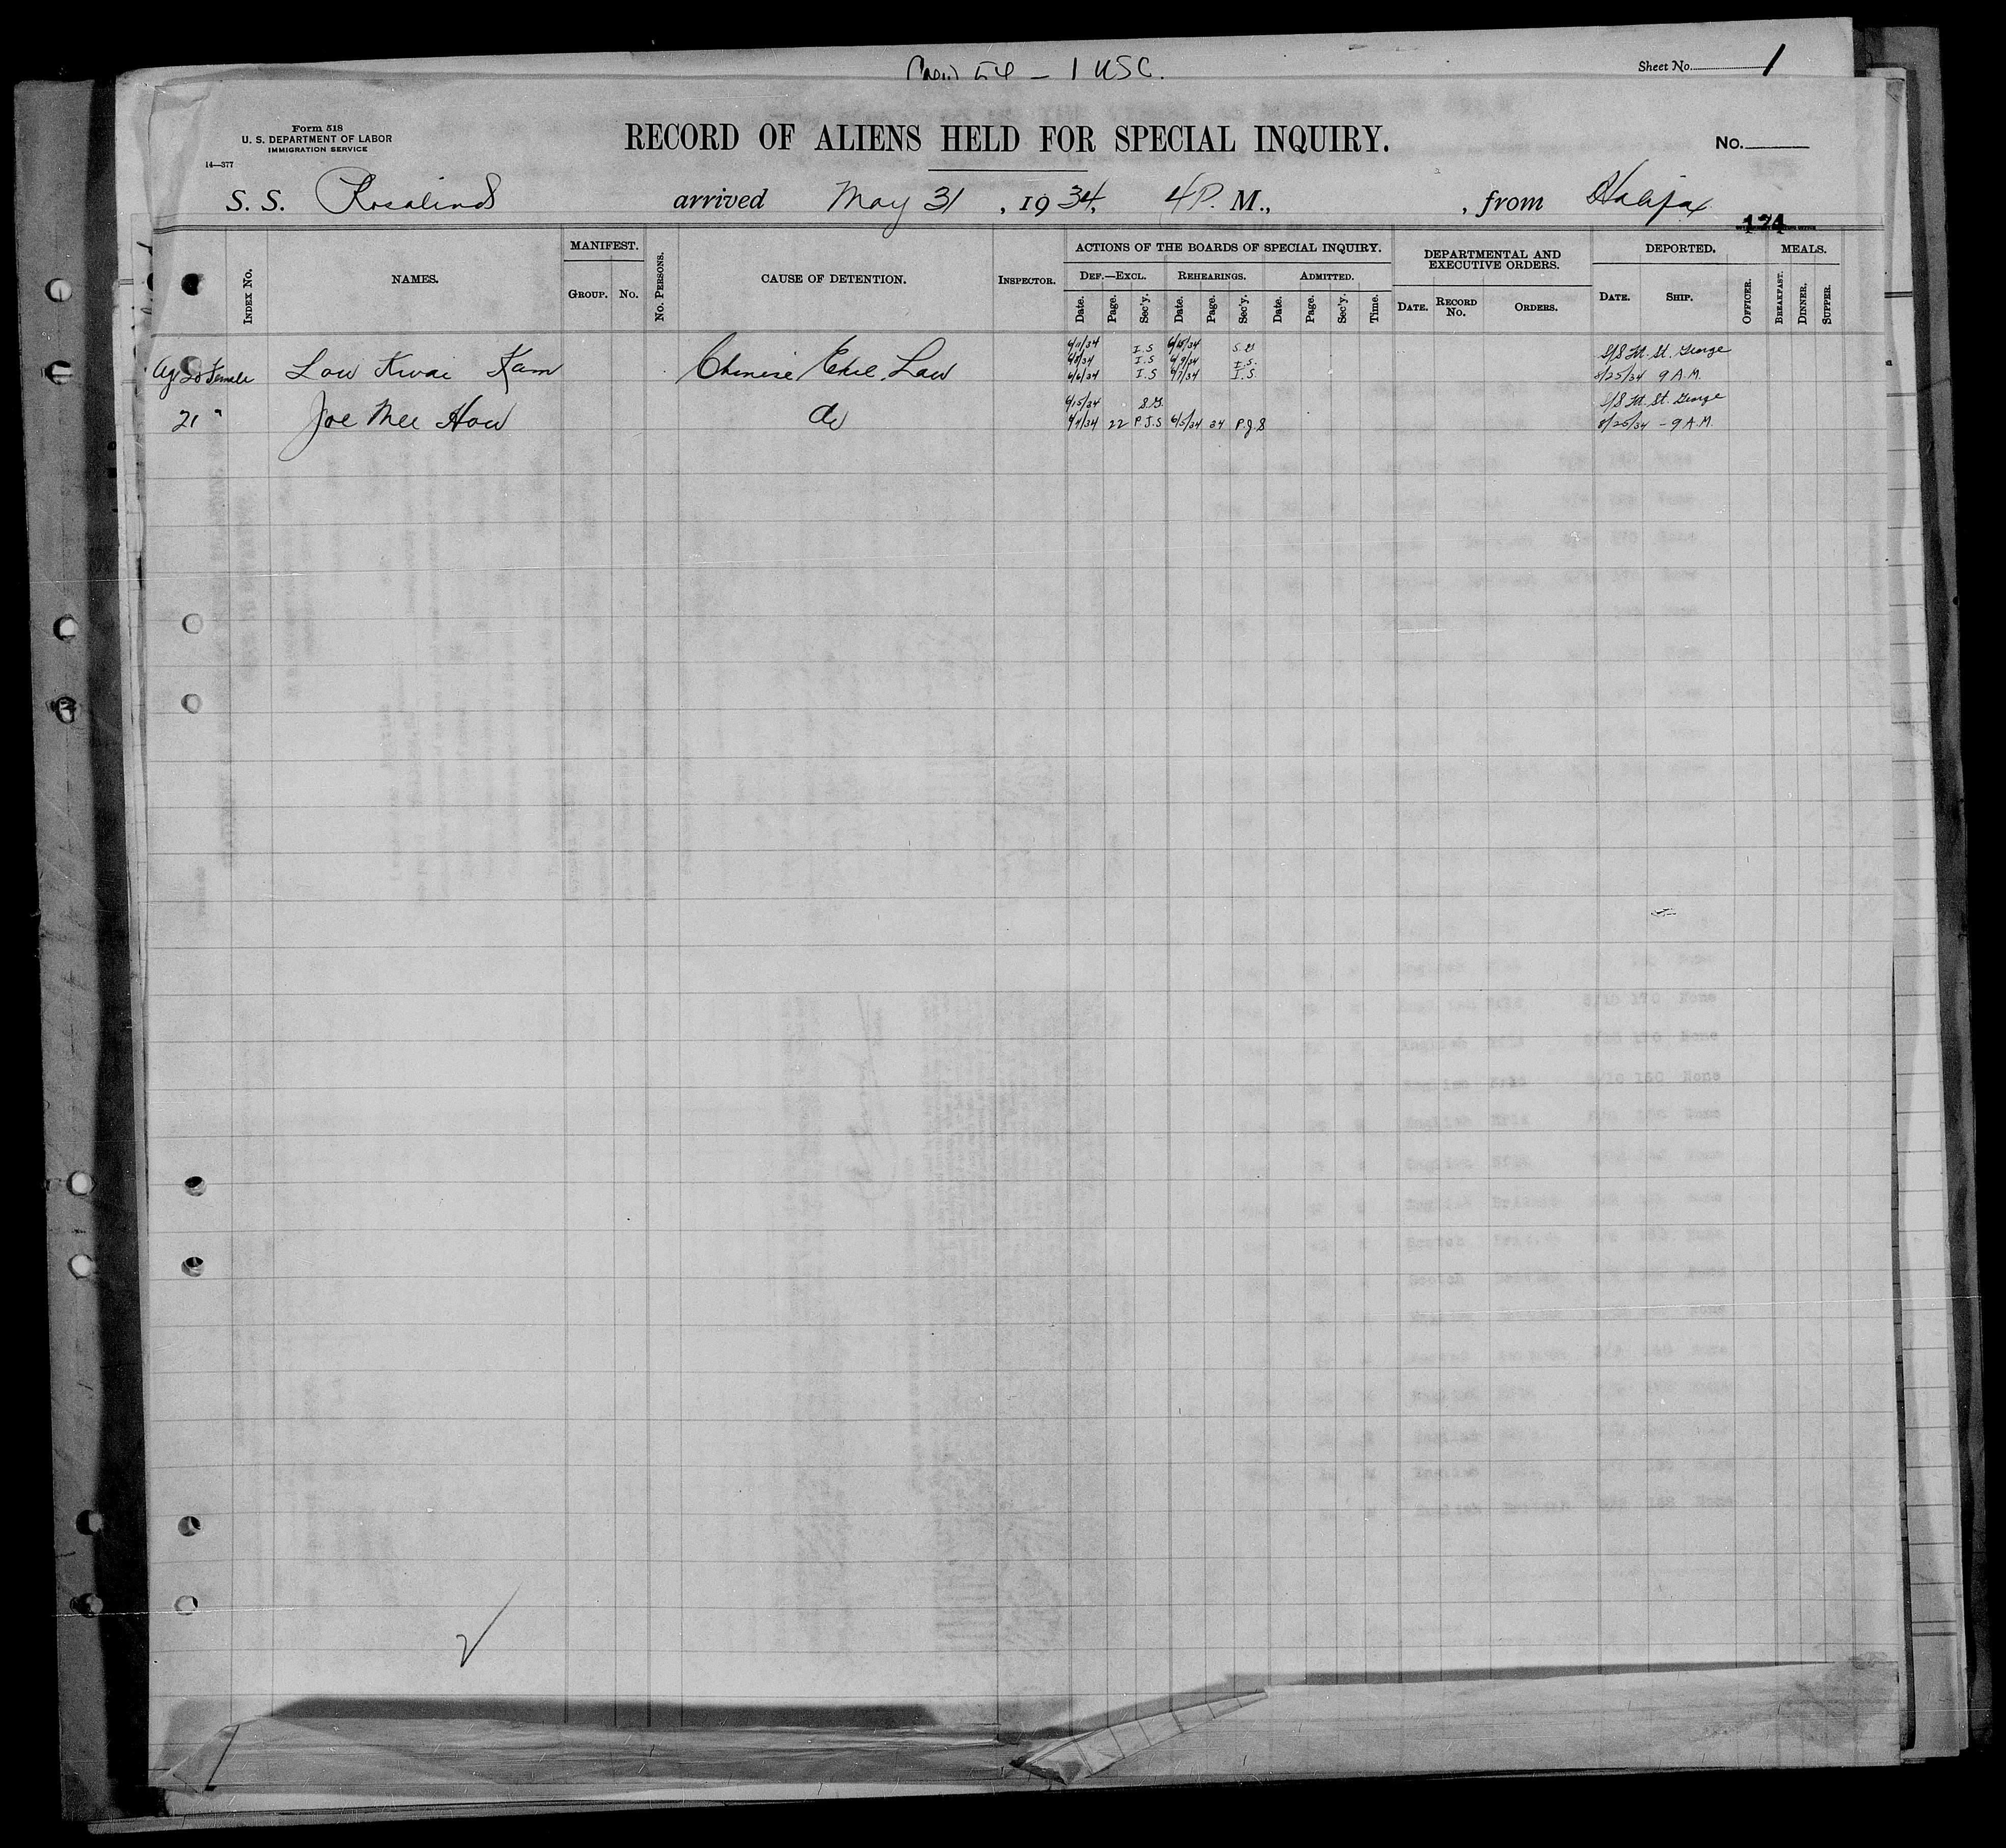 Crew 54 – 1 USC.
Sheet No. 1
Form 518
U. S. DEPARTMENT OF LABOR
IMMIGRATION SERVICE
14—377
RECORD OF ALIENS HELD FOR SPECIAL INQUIRY.
No.
S. S. Rosalind arrived May 31, 1934, 4 P. M., , from Halifax
174
INDEX No.
NAMES.
MANIFEST.
GROUP. No.
No. PERSONS.
CAUSE OF DETENTION.
INSPECTOR.
ACTIONS OF THE BOARDS OF SPECIAL INQUIRY.
DEF.—EXCL. REHEARINGS. ADMITTED.
Date. Page. Sec'y. Date. Page. Sec'y. Date. Page. Sec'y. Time.
DEPARTMENTAL AND
EXECUTIVE ORDERS.
DATE. RECORD No. ORDERS.
DEPORTED.
DATE. SHIP.
OFFICER.
MEALS.
BREAKFAST. DINNER. SUPPER.
6/11/34 I.S 6/15/34 S.G S/S Ft. St. George
Age 20 Female Low Kwai Kam Chinese Excl. Law 6/8/34 I.S 6/9/34 I.S.
6/6/34 I.S 6/7/34 I.S. 8/25/34 9 A.M.
6/15/34 S.G. S/S Ft. St. George
21 " Joe Mee How do 6/4/34 22 P.J.S 6/5/34 24 P.J.S 8/25/34 – 9 A.M.